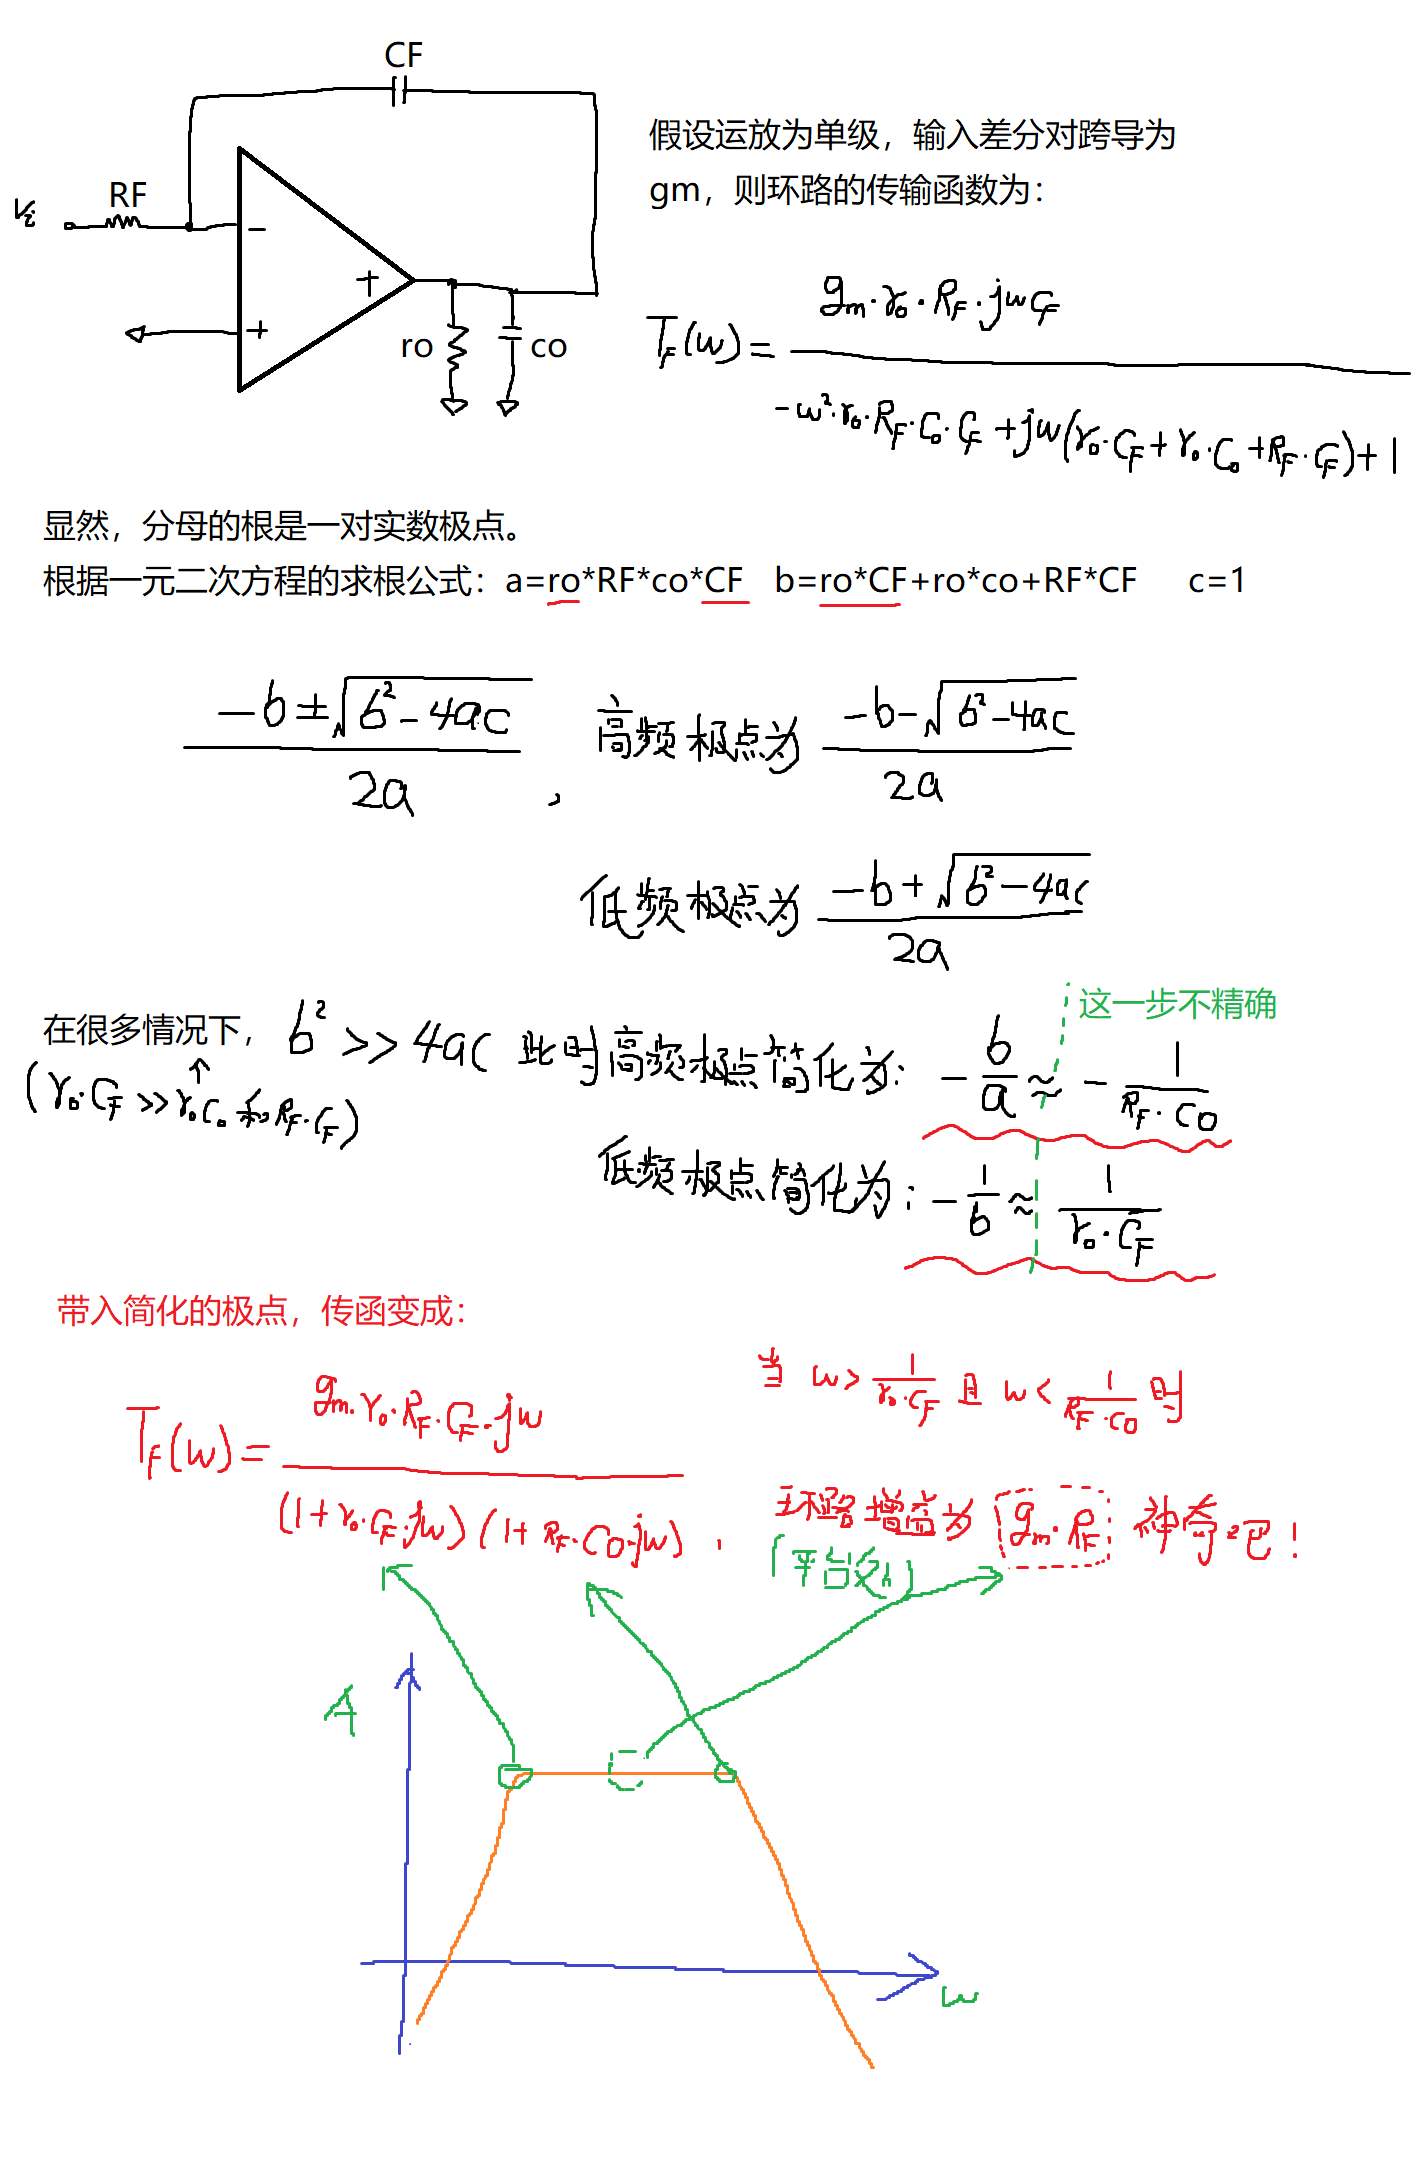 CF
假设运放为单级，输入差分对跨导为
gm，则环路的传输函数为：
RF
Vi
−
+
+
ro
co
T_F(w) = \frac{g_m·r_o·R_F·jwC_F}{-w²·r_o·R_F·C_o·C_F+jw(r_o·C_F+r_o·C_o+R_F·C_F)+1}
显然，分母的根是一对实数极点。
根据一元二次方程的求根公式：a=ro*RF*co*CF b=ro*CF+ro*co+RF*CF c=1
\frac{-b±\sqrt{b²-4ac}}{2a}，高频极点为 \frac{-b-\sqrt{b²-4ac}}{2a}
低频极点为 \frac{-b+\sqrt{b²-4ac}}{2a}
这一步不精确
在很多情况下， b² >> 4ac 此时高频极点简化为: -\frac{b}{a} ≈ -\frac{1}{R_F·CO}
(r_o·C_F >> r_oC_o 和 R_F·C_F)
低频极点简化为: -\frac{1}{b} ≈ \frac{1}{r_o·C_F}
带入简化的极点，传函变成：
当 w > \frac{1}{r_o·C_F} 且 w < \frac{1}{R_F·CO} 时
T_F(w) = \frac{g_m·r_o·R_F·C_F·jw}{(1+r_o·C_F·jw)(1+R_F·CO·jw)}，
环路增益为 g_m·R_F 神奇吧！
(平台处)
A
w